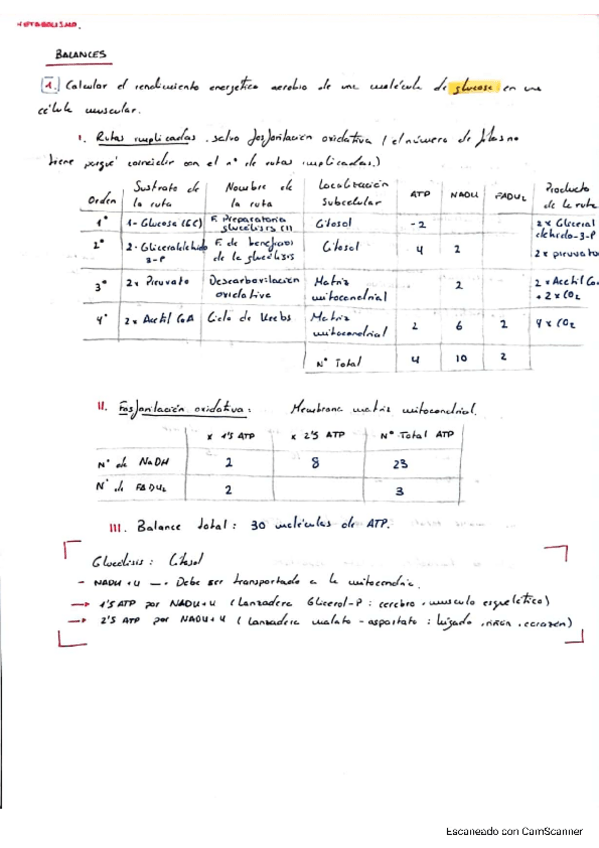 METABOLISMO.
BALANCES
1. Calcular el rendimiento energético aerobio de una molécula de glucosa en una
célula muscular.
I. Rutas implicadas. salvo fosforilación oxidativa (el número de filas no
tiene porqué coincidir con el nº de rutas implicadas.)
Orden | Sustrato de la ruta | Nombre de la ruta | Localización subcelular | ATP | NADH | FADH2 | Producto de la ruta
1º | 1- Glucosa (6C) | F. Preparatoria glucólisis (1) | Citosol | -2 | | | 2x Gliceral dehído-3-P
2º | 2- Gliceraldehído 3-P | F. de beneficios de la glucólisis | Citosol | 4 | 2 | | 2x piruvato
3º | 2x Piruvato | Descarboxilación oxidativa | Matriz mitocondrial | | 2 | | 2x Acetil CoA + 2x CO2
4º | 2x Acetil CoA | Ciclo de Krebs | Matriz mitocondrial | 2 | 6 | 2 | 4x CO2
Nº Total | 4 | 10 | 2
II. Fosforilación oxidativa: Membrana matriz mitocondrial.
x 1'5 ATP | x 2'5 ATP | Nº Total ATP
Nº de NADH | 2 | 8 | 23
Nº de FADH2 | 2 | | 3
III. Balance total: 30 moléculas de ATP.
Glucólisis: Citosol
- NADH+H → Debe ser transportado a la mitocondria.
→ 1'5 ATP por NADH+H (Lanzadera Glicerol-P: cerebro, músculo esquelético)
→ 2'5 ATP por NADH+H (Lanzadera malato-aspartato: hígado, riñón, corazón)
Escaneado con CamScanner